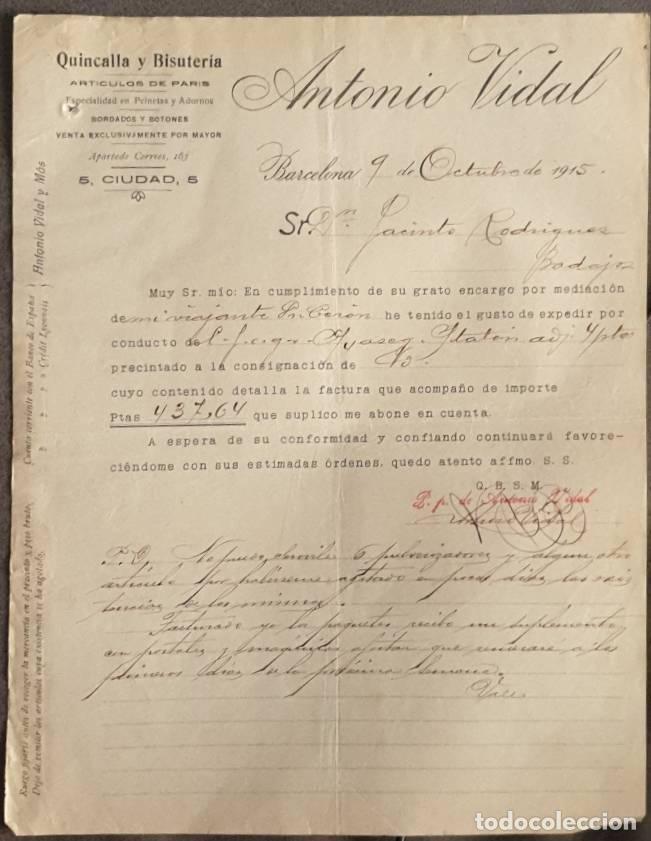 Quincalla y Bisutería
ARTICULOS DE PARIS
Especialidad en Peinetas y Adornos
BORDADOS Y BOTONES
VENTA EXCLUSIVAMENTE POR MAYOR
Apartado Correos, 165
5, CIUDAD, 5
Antonio Vidal
Barcelona 9 de Octubre de 1915.
Sr. Dn. Jacinto Rodriguez
Badajoz
Muy Sr. mío: En cumplimiento de su grato encargo por mediación
de mi viajante Sr. Cerón he tenido el gusto de expedir por
conducto de
precintado a la consignación de Vd.
cuyo contenido detalla la factura que acompaño de importe
Ptas 437,64 que suplico me abone en cuenta.
A espera de su conformidad y confiando continuará favore-
ciéndome con sus estimadas órdenes, quedo atento affmo. S. S.
Q. B. S. M.
P. p. de Antonio Vidal
No puedo 6 pulverizadores y algun otro
articulo por agotado en pocos dias las
de los mismos.
Facturado ya la paquetes recibo un suplemento
con postales y maquinitas afeitar que a los
primeros dias de la próxima semana.
Vale
Antonio Vidal y Mós
Cuenta corriente con el Banco de España
" " " Crédit Lyonnais
Ruego repase antes de recoger la mercancia en el precinto y peso bruto.
Dejo de remitir los artículos cuya existencia se ha agotado.
todocoleccion